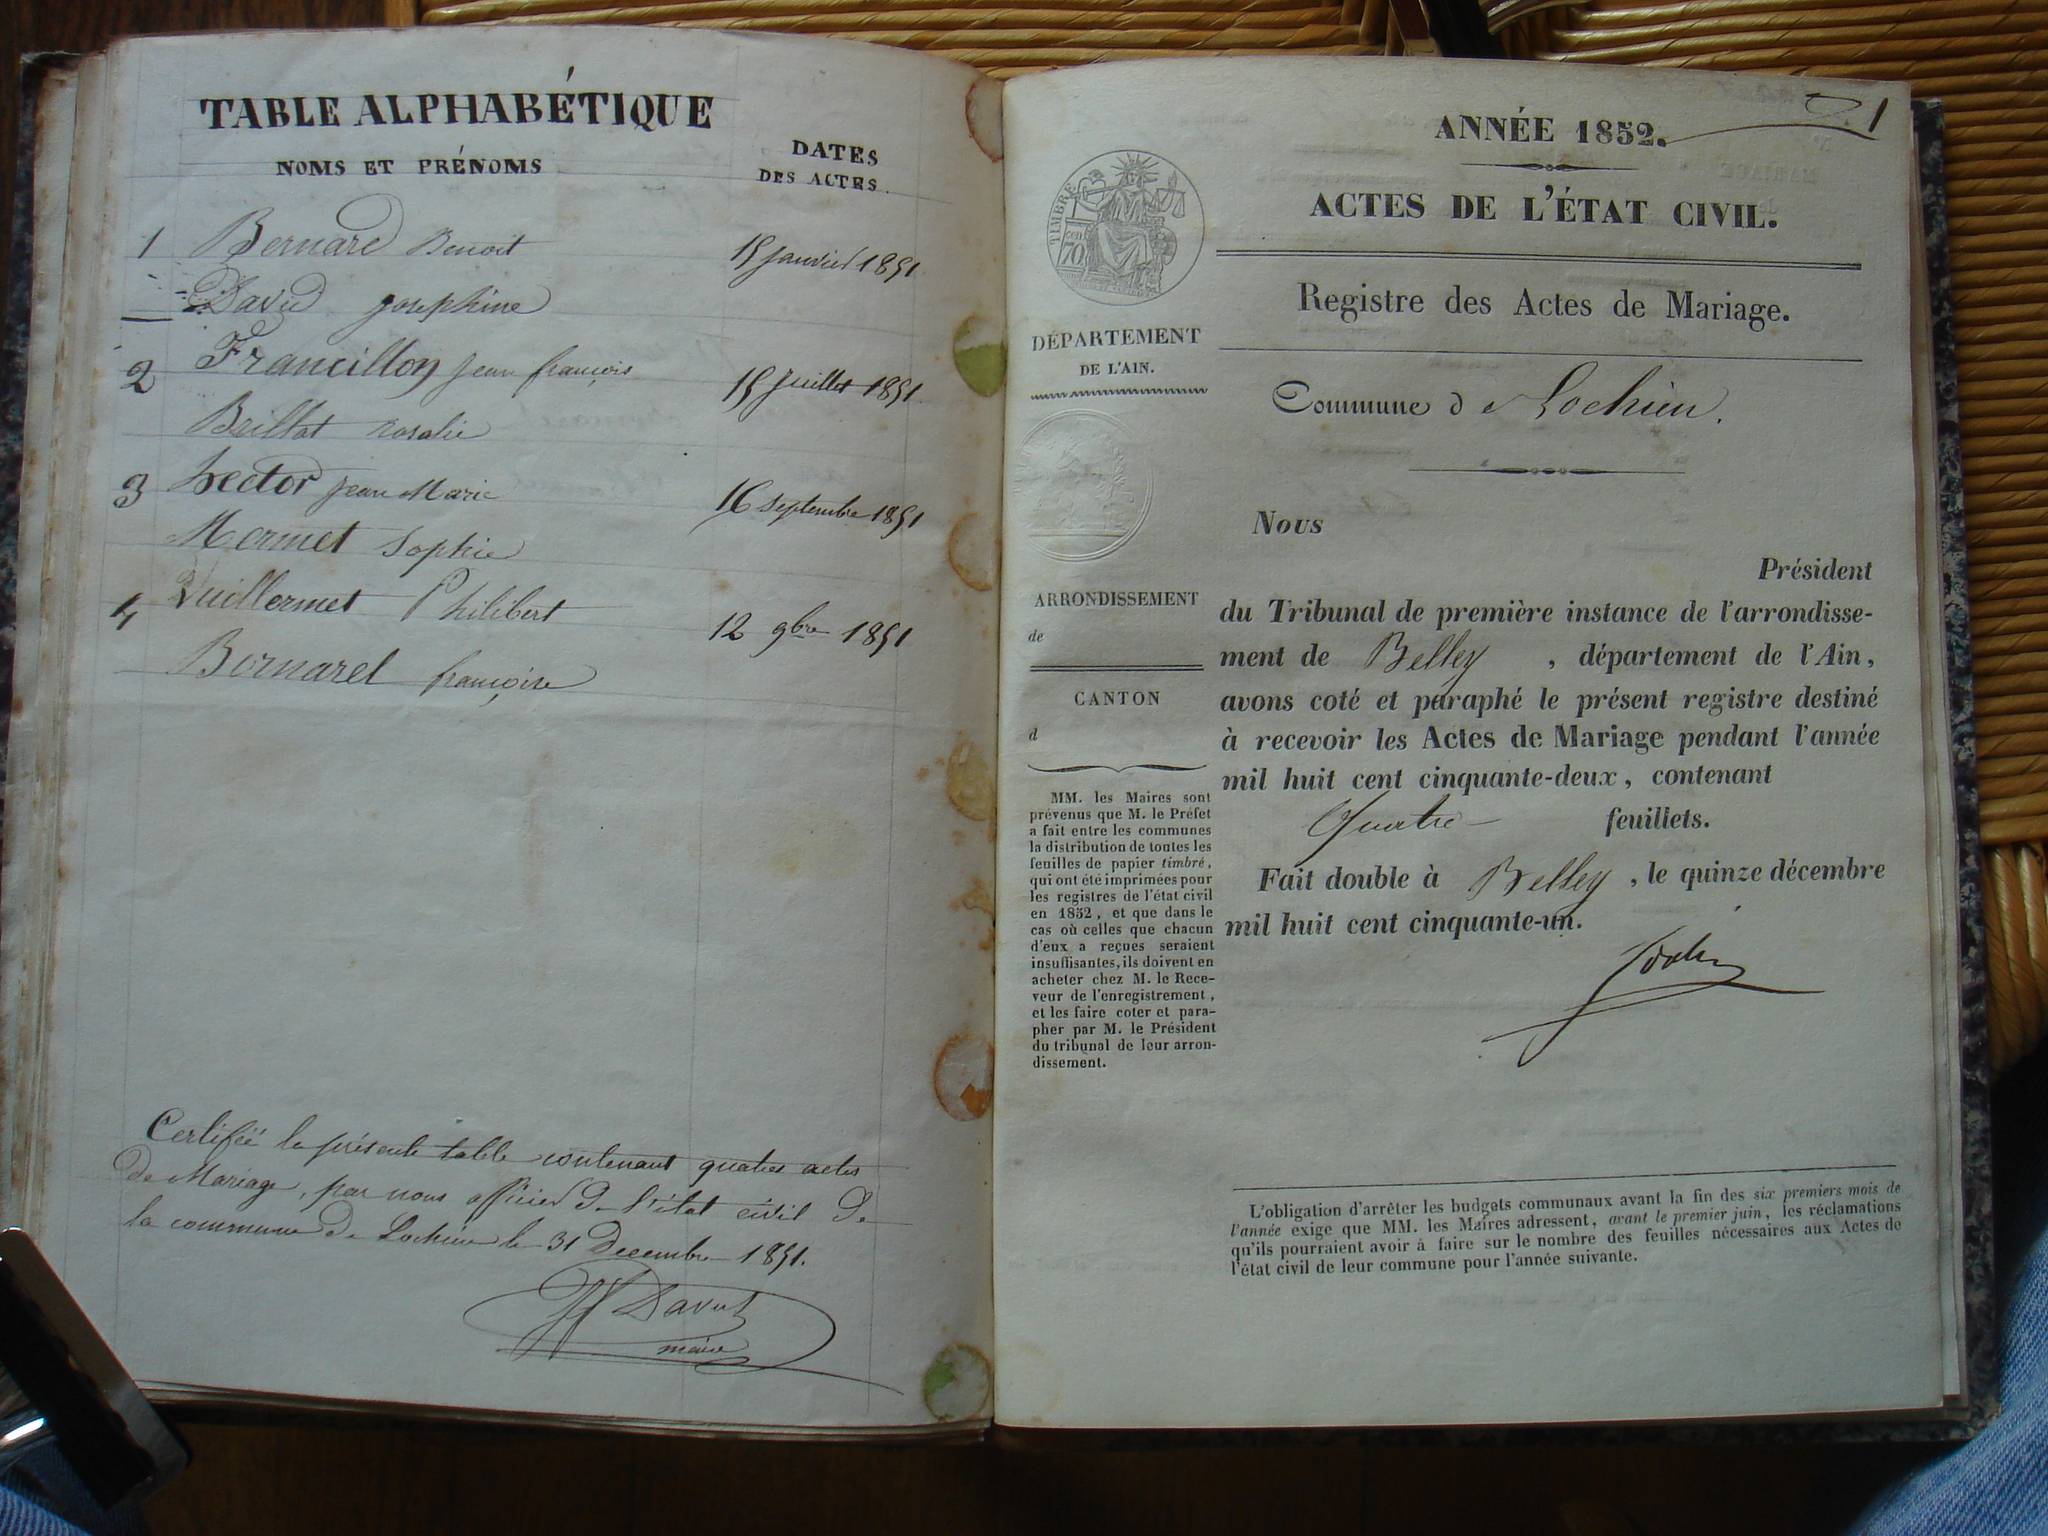 TABLE ALPHABÉTIQUE
NOMS ET PRÉNOMS
DATES
DES ACTES.
1 Bernard Benoit 15 janvier 1851
David josephine
2 Francillon jean françois 15 juillet 1851
Brillat rosalie
3 hector jean Marie 16 septembre 1851
Mermet Sophie
4 Vuillermet Philibert 12 9bre 1851
Bornarel françoise
Certifié la présente table contenant quatres actes
de Mariage, par nous officier de l'état civil de
la commune de Lochieu le 31 Decembre 1851.
David
maire
1
ANNÉE 1852.
ACTES DE L'ÉTAT CIVIL.
Registre des Actes de Mariage.
Commune de Lochieu.
TIMBRE
70 cen
DÉPARTEMENT
DE L'AIN.
ARRONDISSEMENT
de
CANTON
d
MM. les Maires sont
prévenus que M. le Préfet
a fait entre les communes
la distribution de toutes les
feuilles de papier timbré,
qui ont été imprimées pour
les registres de l'état civil
en 1852, et que dans le
cas où celles que chacun
d'eux a reçues seraient
insuffisantes, ils doivent en
acheter chez M. le Rece-
veur de l'enregistrement,
et les faire coter et para-
pher par M. le Président
du tribunal de leur arron-
dissement.
Nous
Président
du Tribunal de première instance de l'arrondisse-
ment de Belley, département de l'Ain,
avons coté et paraphé le présent registre destiné
à recevoir les Actes de Mariage pendant l'année
mil huit cent cinquante-deux, contenant
Quatre feuillets.
Fait double à Belley, le quinze décembre
mil huit cent cinquante-un.
L'obligation d'arrêter les budgets communaux avant la fin des six premiers mois de
l'année exige que MM. les Maires adressent, avant le premier juin, les réclamations
qu'ils pourraient avoir à faire sur le nombre des feuilles nécessaires aux Actes de
l'état civil de leur commune pour l'année suivante.